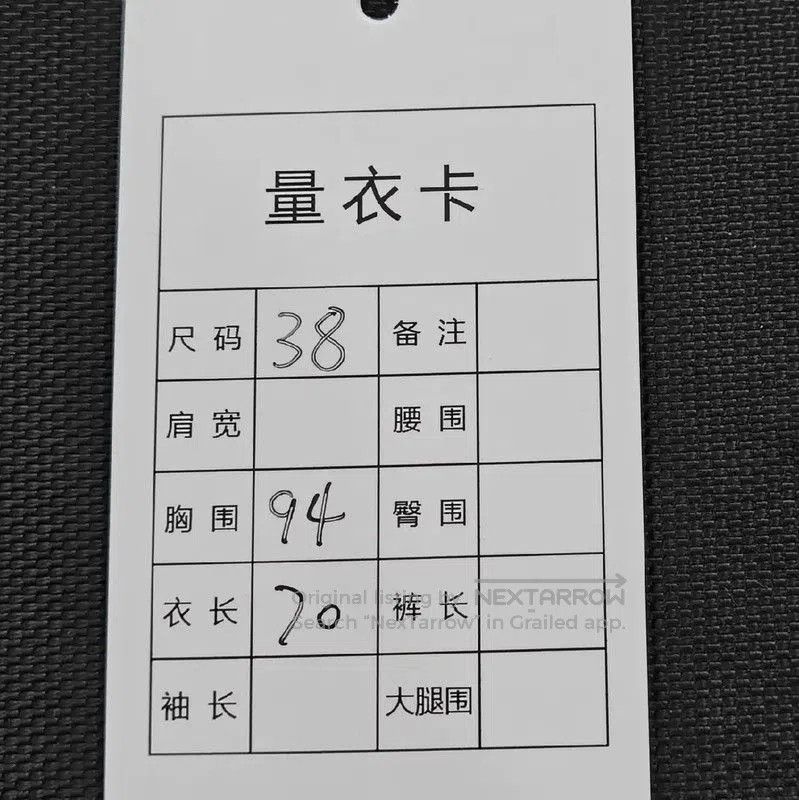 量衣卡
尺码 38 备注
肩宽 腰围
胸围 94 臀围
衣长 70 裤长
Original listing by NEXTARROW
Search "NexTarrow" in Grailed app.
袖长 大腿围